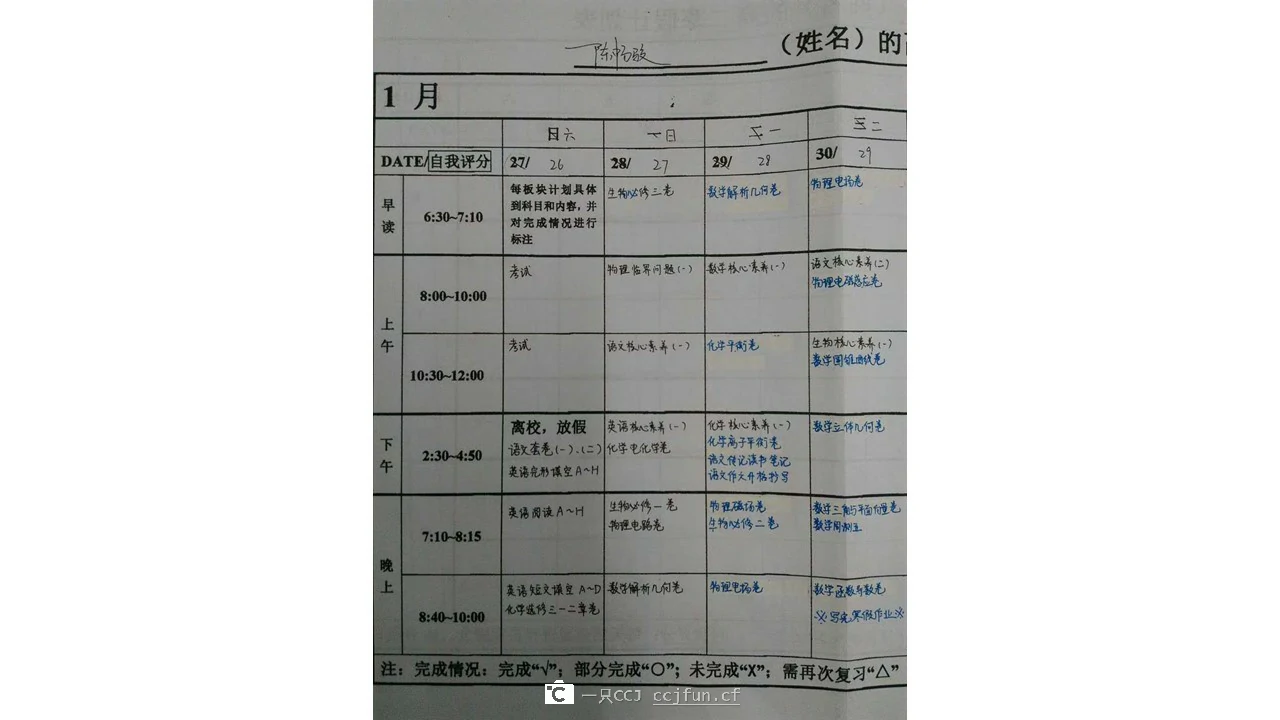 陈畅骏 (姓名) 的
1 月
日六 一日 五一 三二
DATE/自我评分 27/ 26 28/ 27 29/ 28 30/ 29
早读 6:30~7:10
每板块计划具体
到科目和内容，并
对完成情况进行
标注
生物必修三卷
数学解析几何卷
物理电场卷
上午 8:00~10:00
考试
物理临界问题(一)
数学核心素养(一)
语文核心素养(二)
物理电磁感应卷
10:30~12:00
考试
语文核心素养(一)
化学平衡卷
生物核心素养(一)
数学圆锥曲线卷
下午 2:30~4:50
离校，放假
语文套卷(一).(二)
英语完形填空 A~H
英语核心素养(一)
化学电化学卷
化学核心素养(一)
化学离子平衡卷
语文传记读书笔记
语文作文升格抄写
数学立体几何卷
晚上 7:10~8:15
英语阅读 A~H
生物必修一卷
物理电路卷
物理磁场卷
生物必修二卷
数学三角与平面向量卷
数学周测五
8:40~10:00
英语短文填空 A~D
化学选修三一二章卷
数学解析几何卷
物理电场卷
数学函数导数卷
※写完寒假作业※
注：完成情况：完成“√”；部分完成“○”；未完成“X”；需再次复习“△”
一只CCJ ccjfun.cf